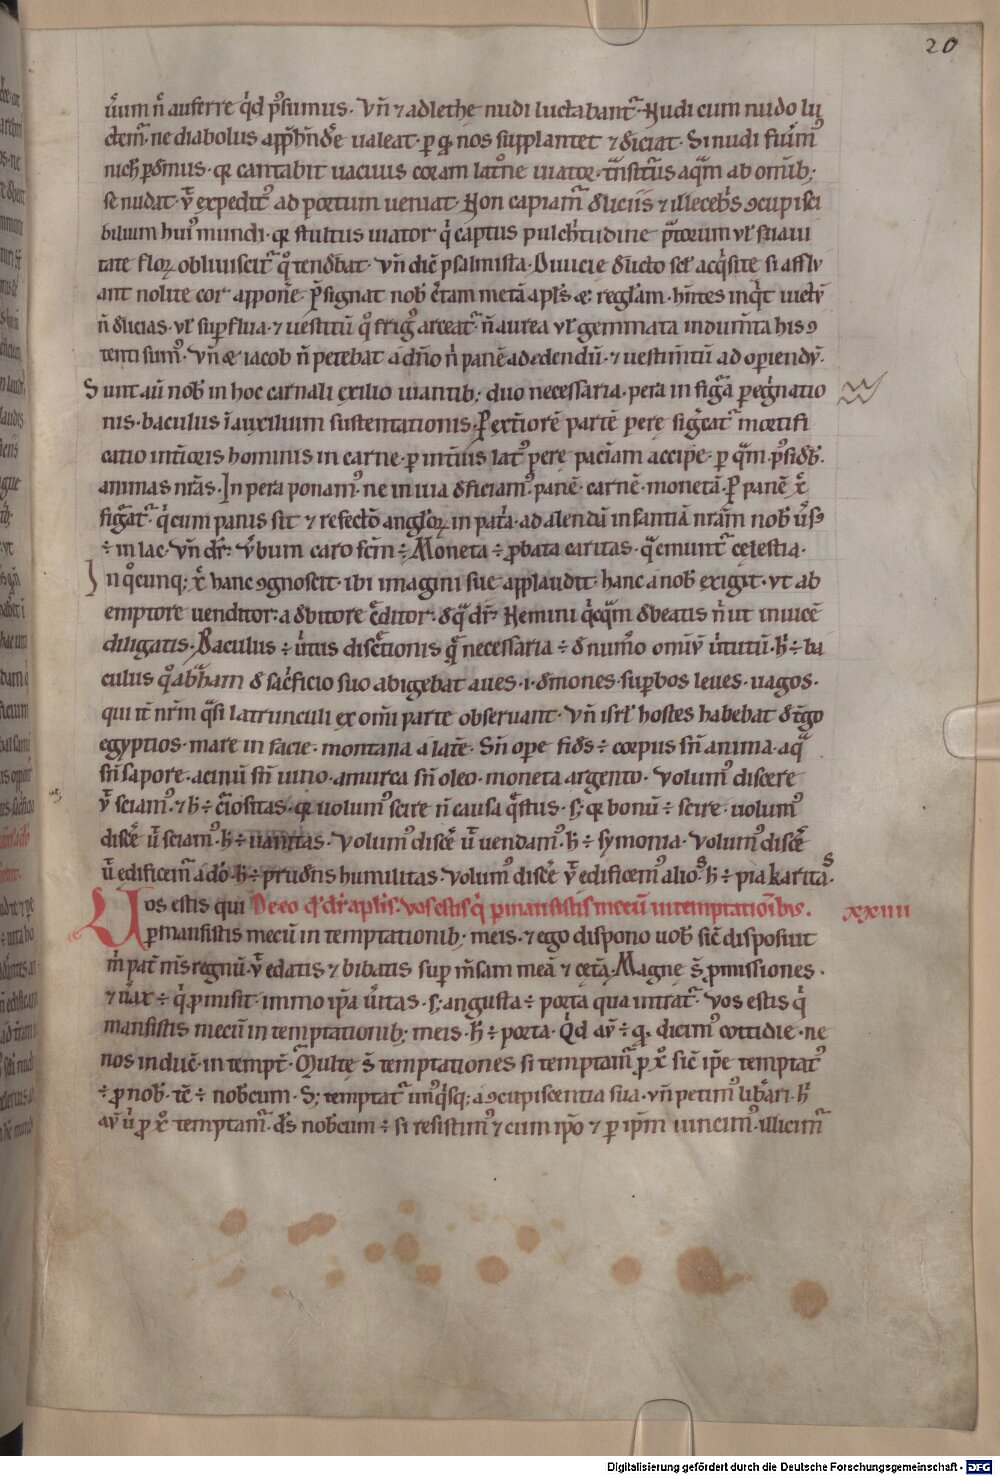 20
ũum ñ auferre q̇d p̾sumus. Vñ ⁊ ad lethe nudi luctabant᷑. Nudi cum nudo lu
ctem᷑. ne diabolus app̾h̾nde᷑ ualeat. p̱ q̱ nos supplantet ⁊ deiciat. Si nudi fuim᷒
nich̾ p̱dimus. qr cantabit uacuus coram latrōe uiator. t̾nsit̾us aq̃m ab omīb;
se nudat. ũ expedit᷒ ad portum ueniat. Non capiam᷑ deliciis ⁊ illecebris ꝯcupisci
bilium hui᷒ mundi. qr stultus uiator q̇ captus pulchritudine p̃torum ul̃ suaui
tate floꝝ obliuiscit᷑ q̊ tendebat. Vñ dic̄ psalmista. Diuicie delicto sel̃ acq̇site si afflu
ant nolite cor appone᷑. P̃signat nob̾ c̾tam metā apl̃s ⁊ reglam. hñtes inq̇t uictū
ñ delicias. ul̃ sup̱flua. ⁊ uestitū q̊ frig᷒ arceat᷑. ñ aurea ul̃ gemmata indum̃ta his ꝯ
tenti sum᷒. Vñ ⁊ iacob ñ petebat a dño ñ panē ad edendū. ⁊ uestim̃tū ad operiendū.
Sunt aū nob̾ in hoc carnali exilio uiantib; duo necessaria. pera in figura p̱eg̾natio
nis. baculus ī auxilium sustentationis. P̱ exteriorē partē perę sig̾cat᷑ mortifi
catio interioris hominis in carne. p̱ int̾ius lat᷒ perę paciam accipe. p̱ q̃m p̾sideb̾.
animas nr̃as. In pera ponam᷒ ne in uia deficiam᷒. panē. carnē. monetā. P̱ panē xp̄c
figat᷑. q̇ cum panis sit ⁊ refectō angl̾oꝝ in patria. ad alendū infantiā nr̃am nob̾ ũs᷒
÷ in lac. Vñ dr̃. Ṽbum caro fc̄m ÷. Moneta ÷ p̱bata caritas. q̃ emunt᷑ celestia.
In q̊cunq; xp̄c hanc ꝯgnoscit. ibi imagini suę applaudit. hanc a nob̾ exigit. ut ab
emptore uenditor. a debitore c̾ditor. de q̃ dr̃. Nemini q̇cq̃m debeatis ñ ut inuicē
diligatis. Baculus ÷ ũtus disc̾tionis q̃ necessaria ÷ de num̾o omiū ũtutū. h̾ ÷ ba
culus q̊ abr̃ham de sac̾ficio suo abigebat aues. i. demones. sup̱bos leues. uagos.
qui it̃ nr̃m q̃si latrunculi ex omi parte obseruant. Vñ isrl̃ hostes habebat de t̾go
egyptios. mare in facie. montana a late᷑. Sñ ope fides ÷ corpus sñ anima. aq̃
sñ sapore. acinū sñ uino. amurca sñ oleo. moneta argento. Volum᷒ discere
ṽ sciam᷒ ⁊ h̾ ÷ c̾iositas. qr uolum᷒ scire ñ causa q̃stus. s; qr bonū ÷ scire. uolum᷒
disce᷑ ũ sciam᷒. h̾ ÷ uanitas. Volum᷒ disce᷑ ũ uendam᷒. h̾ ÷ symonia. Volum᷒ disce᷑
ũ edificem᷑ a dō. h̾ ÷ prudens humilitas. Volum᷒ disce᷑ ṽ edificem᷒ alios. h̾ ÷ pia karitas.
Vos estis qui De eo q̇ dr̃ apl̃is. vos estis q̇ p̱mansistis mecū in temptationibs. xxiiii
p̱mansistis mecū in temptationib; meis. ⁊ ego dispono uob̾ sic̄ disposuit
m̾ pat̾ m̃s regnū. ṽ edatis ⁊ bibatis sup̱ m̃sam meā ⁊ cet̃a. Magnę s̃ p̱missiones.
⁊ ũax ÷ q̇ p̱misit immo ip̃a ũitas. s; angusta ÷ porta qua intrat᷑. Vos estis q̇
mansistis mecū in temptationib; meis. h̾ ÷ porta. Q̇d aū ÷ q̱ dicim᷒ cottidie. ne
nos inducas in tempt̃. Multę s̃ temptationes si temptam᷑ p̱ xp̄o sic̄ ip̃e temptat᷒
÷ p̱ nob̾. tc̄ ÷ nob̾cum. S; temptat᷑ unq̇sq; a ꝯcupiscentia sua. vñ petim᷒ lib̾ari. h̾
aū ũ p̱ xp̄o temptam᷑. ds̃ nob̾cum ÷ si resistim᷒ ⁊ cum ip̃o ⁊ p̱ ip̃m iuncim᷒. illicim᷑
Digitalisierung gefördert durch die Deutsche Forschungsgemeinschaft - DFG